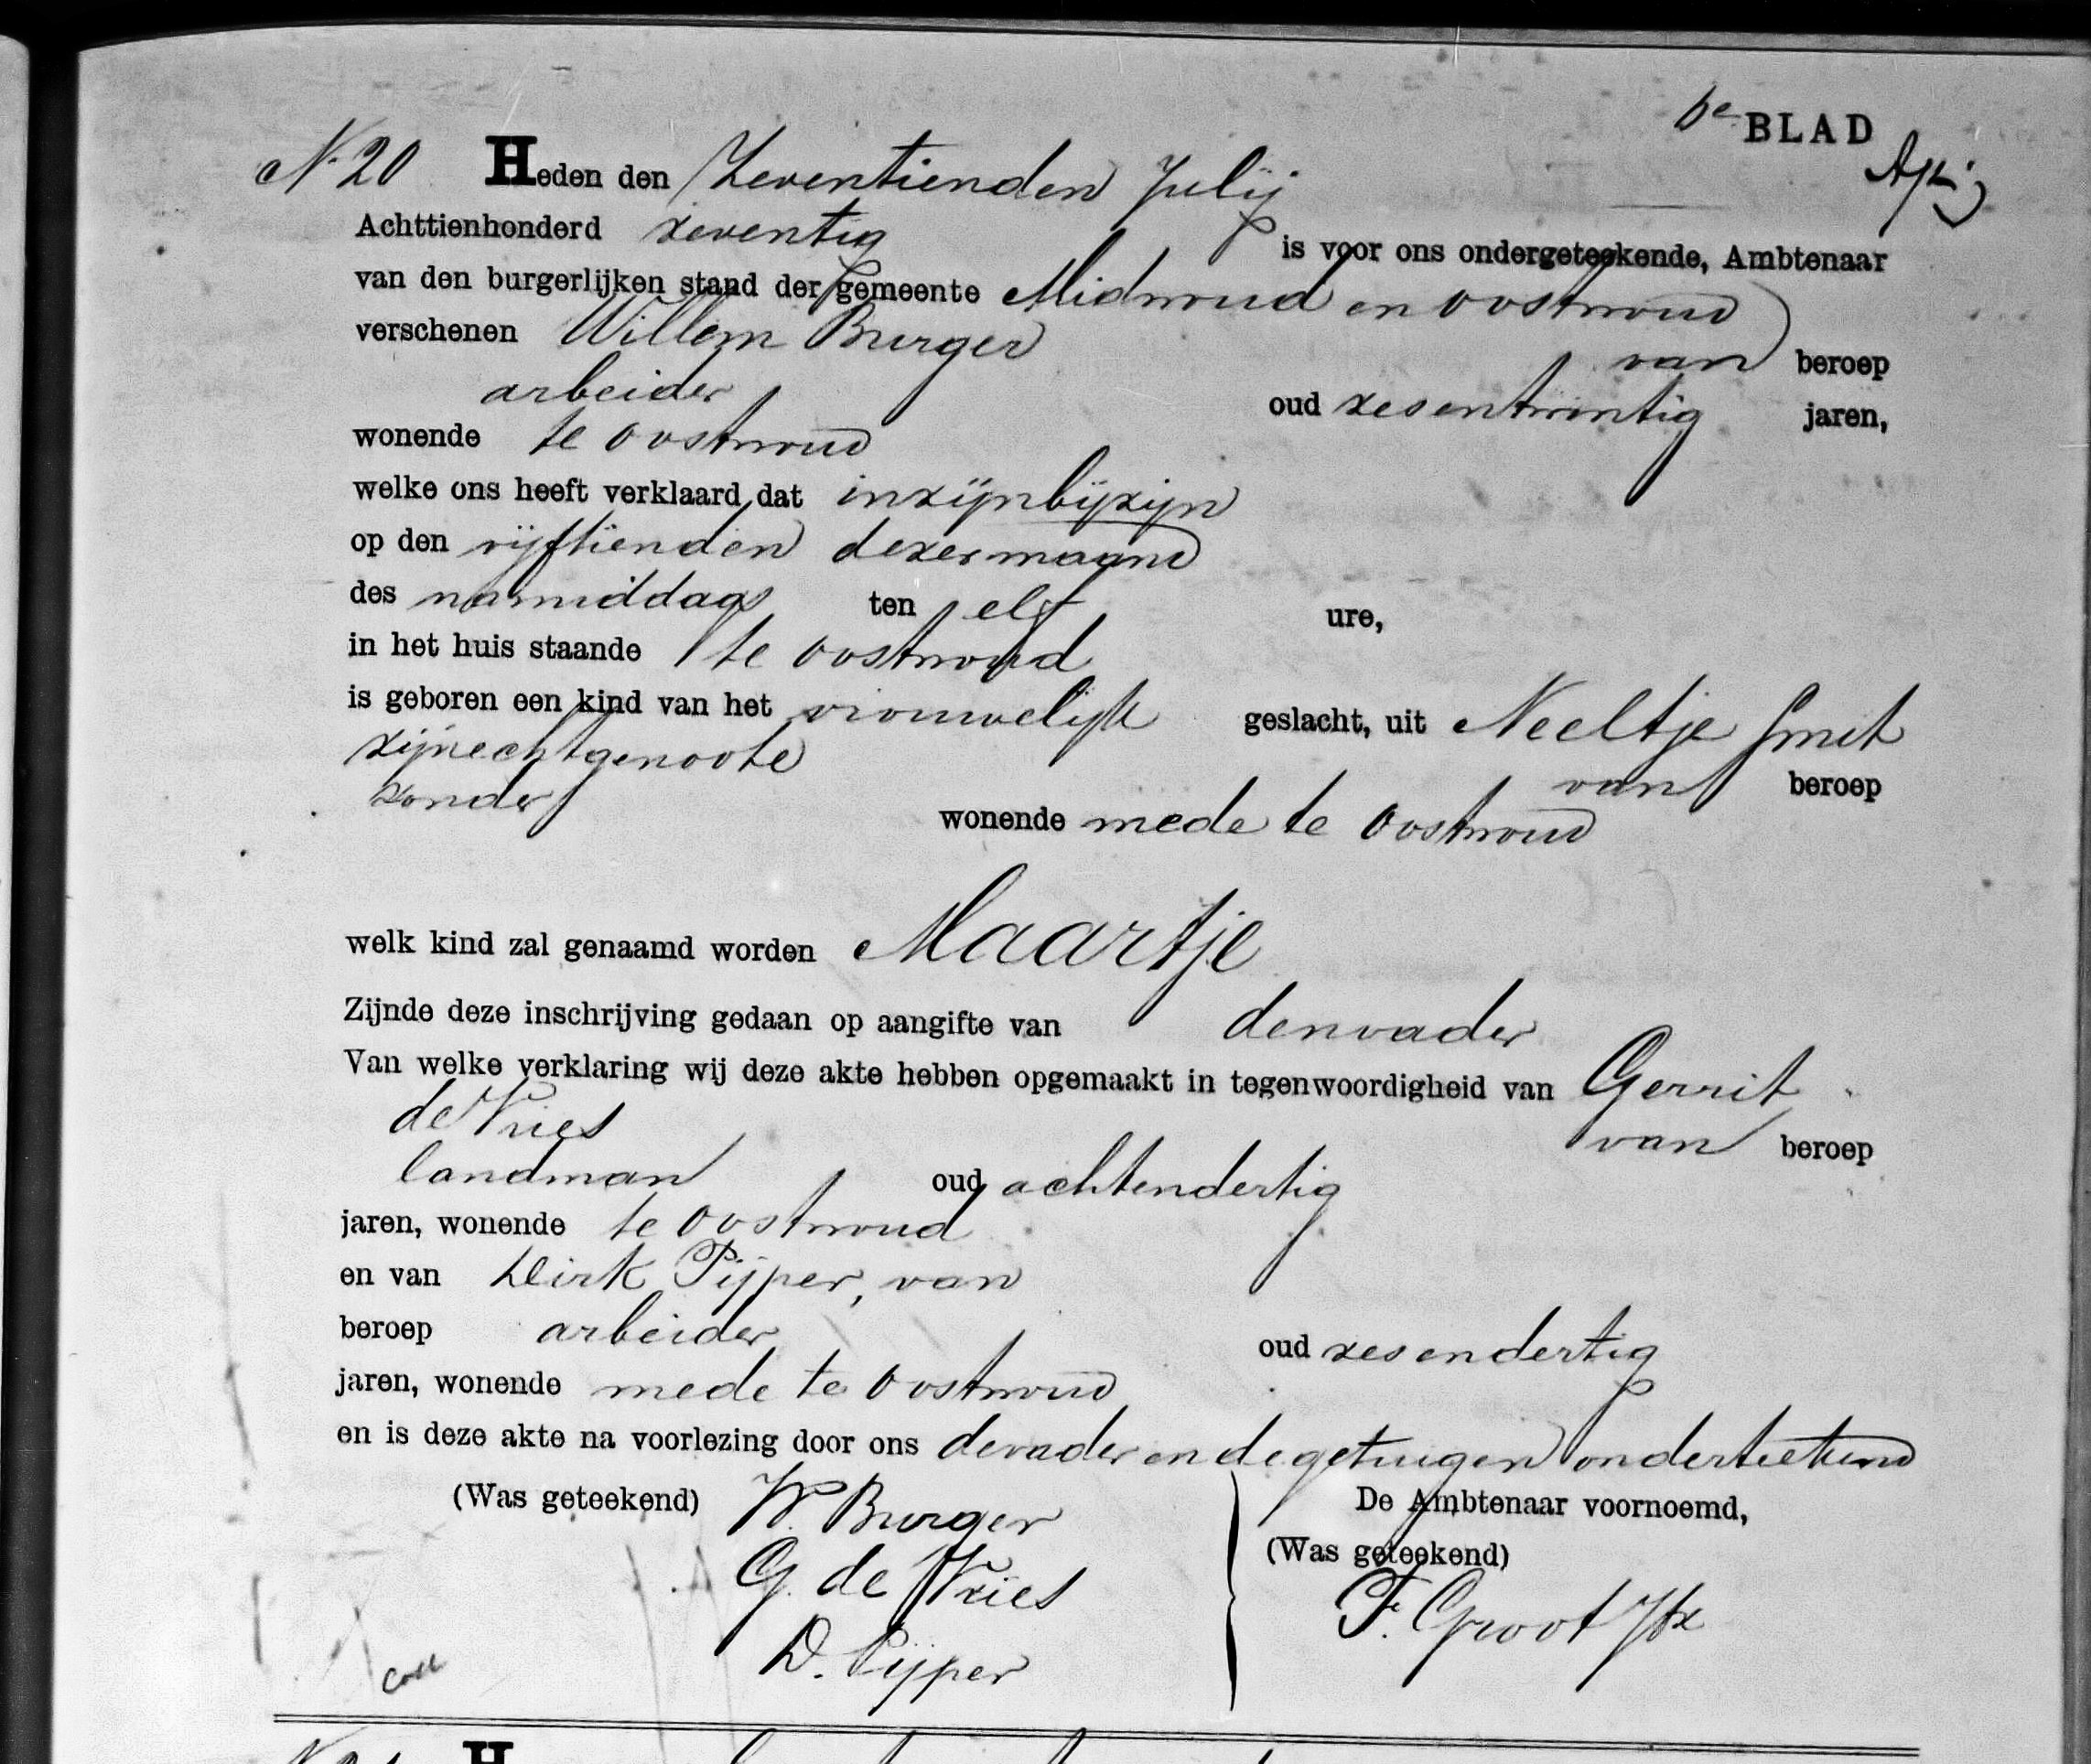 6e BLAD
N 20 Heden den Zeventienden Julij
Achttienhonderd zeventig is voor ons ondergeteekende, Ambtenaar
van den burgerlijken stand der gemeente Midwoud en Oostwoud
verschenen Willem Burger van beroep
arbeider oud zesentwintig jaren,
wonende te Oostwoud
welke ons heeft verklaard dat in zijn bijzijn
op den vijftienden dezer maand
des namiddags ten elf ure,
in het huis staande te Oostwoud
is geboren een kind van het vrouwelijk geslacht, uit Neeltje Smit
zijne echtgenoote van beroep
zonder wonende mede te Oostwoud
welk kind zal genaamd worden Maartje
Zijnde deze inschrijving gedaan op aangifte van den vader
Van welke verklaring wij deze akte hebben opgemaakt in tegenwoordigheid van Gerrit
de Vries van beroep
landman oud achtendertig
jaren, wonende te Oostwoud
en van Dirk Pijper, van
beroep arbeider oud zesendertig
jaren, wonende mede te Oostwoud
en is deze akte na voorlezing door ons de vader en de getuigen onderteekend
(Was geteekend) W. Burger De Ambtenaar voornoemd,
G. de Vries (Was geteekend)
D. Pijper F. Groot